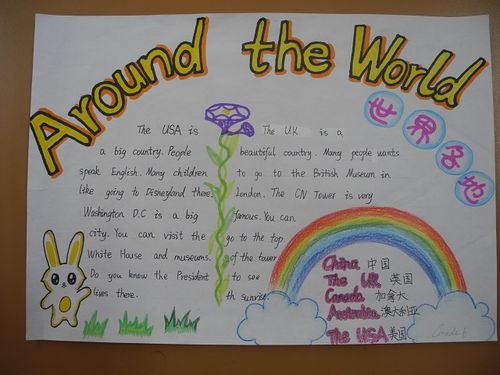 Around the World
世界各地
The USA is
a big country. People
speak English. Many children
like going to Disneyland there.
Washington D.C is a big
city. You can visit the
White House and museums.
Do you know the President
lives there.
The UK is a
beautiful country. Many people wants
to go to the British Museum in
London. The CN Tower is very
famous. You can
go to the top
of the tower
to see
th sunrise.
China 中国
The UK 英国
Canada 加拿大
Australia 澳大利亚
The USA 美国
Grade 6